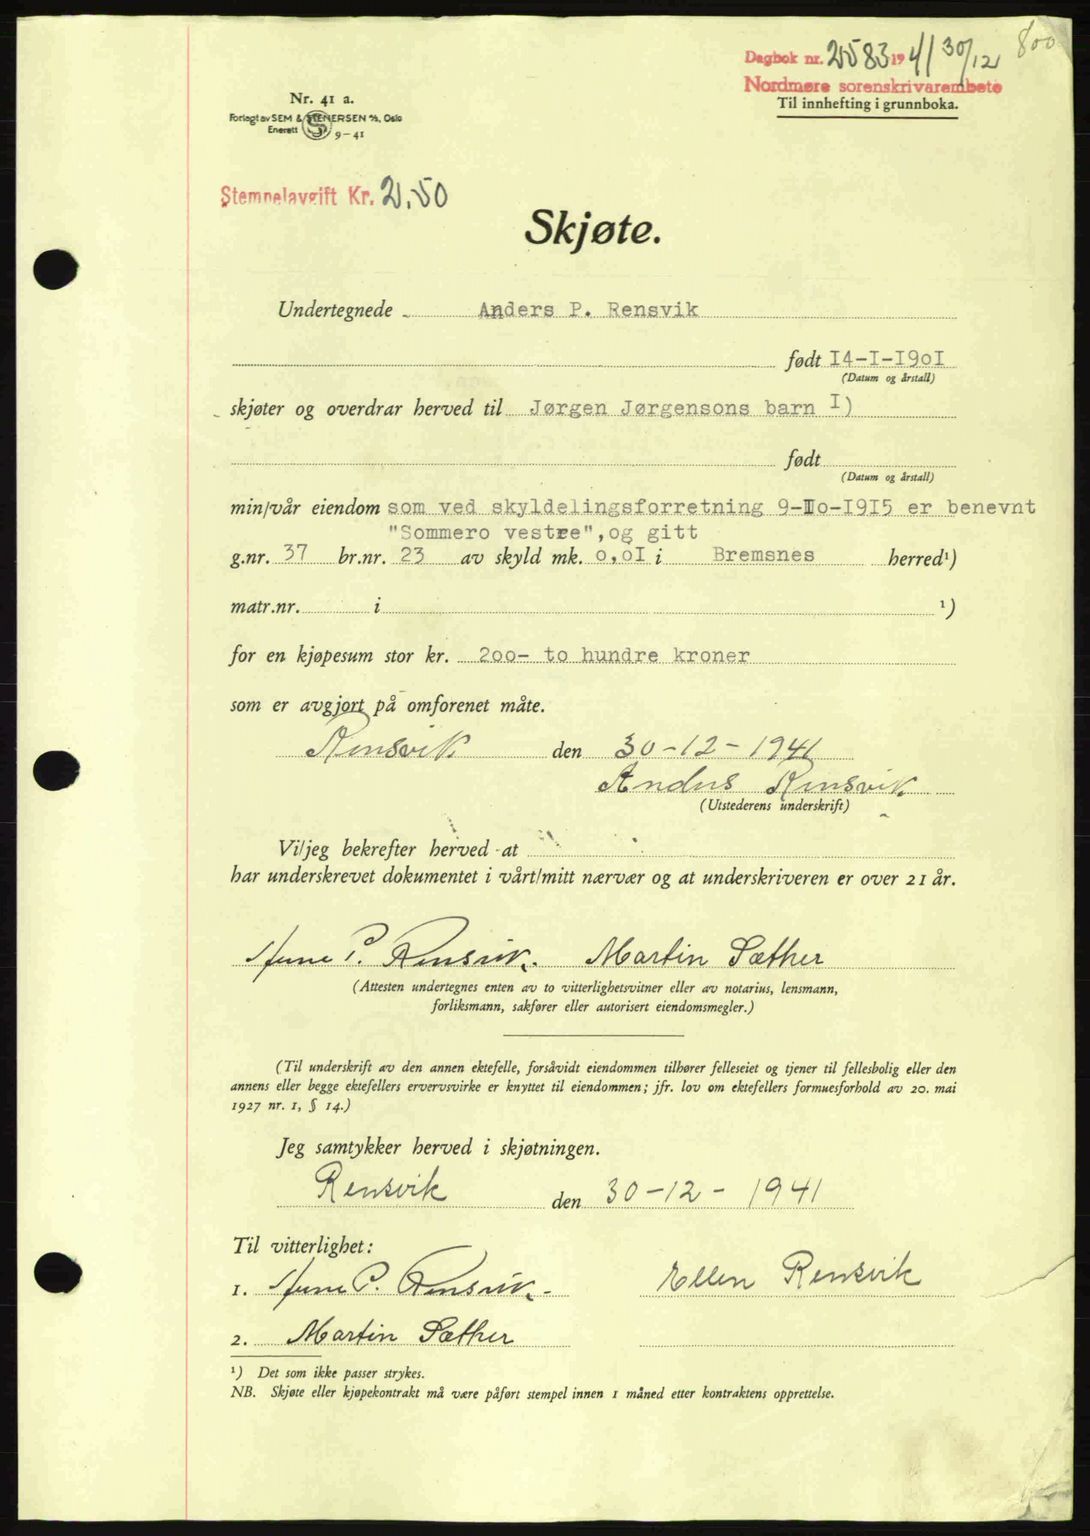 800
Dagbok nr. 2583 1941 30/12
Nordmøre sorenskrivarembete
Til innhefting i grunnboka.
Nr. 41 a.
Forlagt av SEM & STENERSEN A/S, Oslo
Enerett 9-41
Stempelavgift Kr. 2.50
Skjøte.
Undertegnede Anders P. Rensvik
født 14-I-19oI
(Datum og årstall)
skjøter og overdrar herved til Jørgen Jørgensons barn I)
født
(Datum og årstall)
min/vår eiendom som ved skyldelingsforretning 9-Io-1915 er benevnt
"Sommero vestre", og gitt
g.nr. 37 br.nr. 23 av skyld mk. o,oI i Bremsnes herred¹)
matr.nr. i ¹)
for en kjøpesum stor kr. 2oo- to hundre kroner
som er avgjort på omforenet måte.
Rensvik den 30-12-1941
Anders Rensvik
(Utstederens underskrift)
Vi/jeg bekrefter herved at
har underskrevet dokumentet i vårt/mitt nærvær og at underskriveren er over 21 år.
P. Rensvik. Martin Sæther
(Attesten undertegnes enten av to vitterlighetsvitner eller av notarius, lensmann,
forliksmann, sakfører eller autorisert eiendomsmegler.)
(Til underskrift av den annen ektefelle, forsåvidt eiendommen tilhører felleseiet og tjener til fellesbolig eller den
annens eller begge ektefellers ervervsvirke er knyttet til eiendommen; jfr. lov om ektefellers formuesforhold av 20. mai
1927 nr. 1, § 14.)
Jeg samtykker herved i skjøtningen.
Rensvik den 30-12-1941
Til vitterlighet:
1. P. Rensvik. Ellen Rensvik
2. Martin Sæther
¹) Det som ikke passer strykes.
NB. Skjøte eller kjøpekontrakt må være påført stempel innen 1 måned etter kontraktens opprettelse.